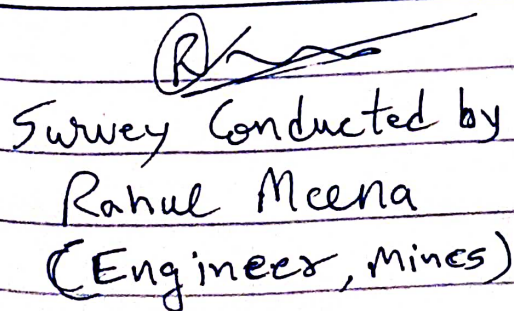 Survey Conducted by
Rahul Meena
(Engineer, Mines)